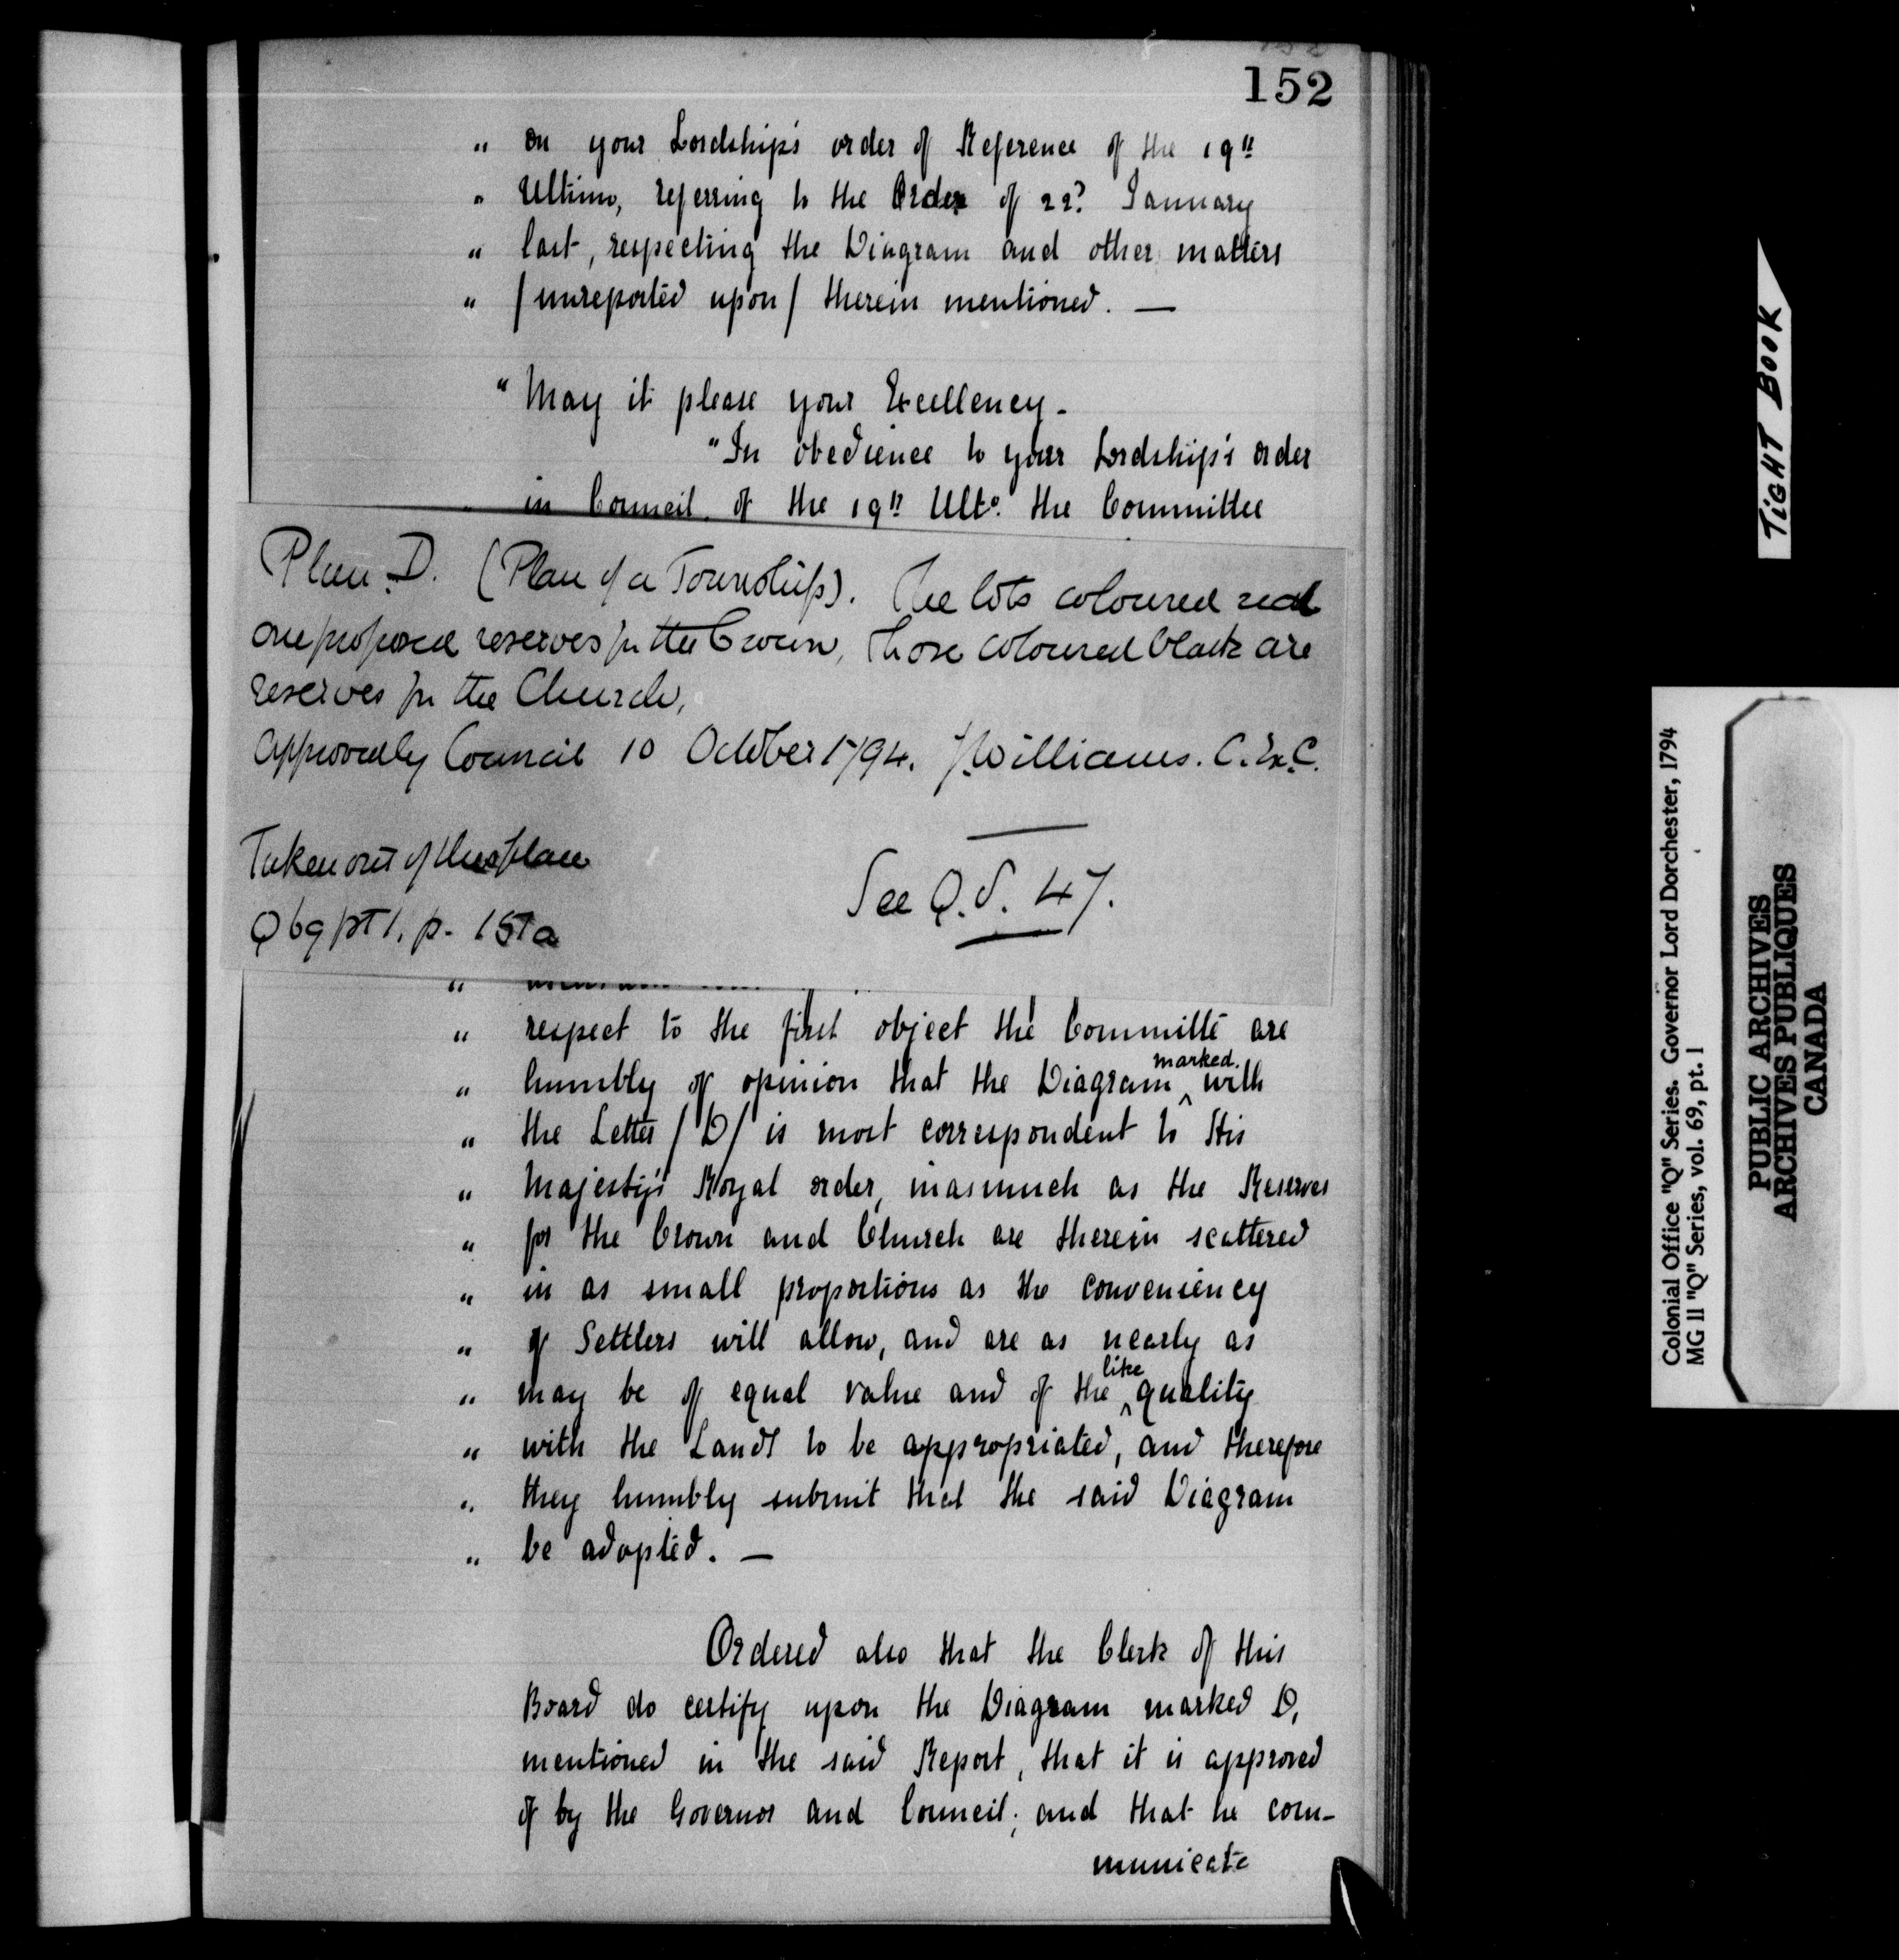 152
" on your Lordship's order of Reference of the 19th
" Ultimo, referring to the Order of 22d January
" last, respecting the Diagram and other matters
" / unreported upon / therein mentioned. —
" May it please your Excellency -
" In obedience to your Lordship's order
in Council of the 19th Ulto. the Committee
Plan D. (Plan of a Township). The lots coloured red
are proposed reserves for the Crown, Those coloured black are
reserves for the Church,
Approved by Council 10 October 1794. J. Williams. C. Ex. C.
Taken out of this place
Q 69 pt 1. p. 151a
See Q.S. 47.
" respect to the first object the Committé are
" humbly of opinion that the Diagram ^ marked. with
" the Letter / D / is most correspondent to His
" Majesty's Royal order, inasmuch as the Reserves
" for the Crown and Church are therein scattered
" in as small proportions as the conveniency
" of Settlers will allow, and are as nearly as
" may be of equal value and of the ^ like quality
" with the Lands to be appropriated, and therefore
" they humbly submit that the said Diagram
" be adopted. —
Ordered also that the Clerk of this
Board do certify upon the Diagram marked D,
mentioned in the said Report, that it is approved
of by the Governor and Council; and that he com-
municate
TIGHT BOOK
Colonial Office "Q" Series. Governor Lord Dorchester, 1794
MG 11 "Q" Series, vol. 69, pt. 1
PUBLIC ARCHIVES
ARCHIVES PUBLIQUES
CANADA